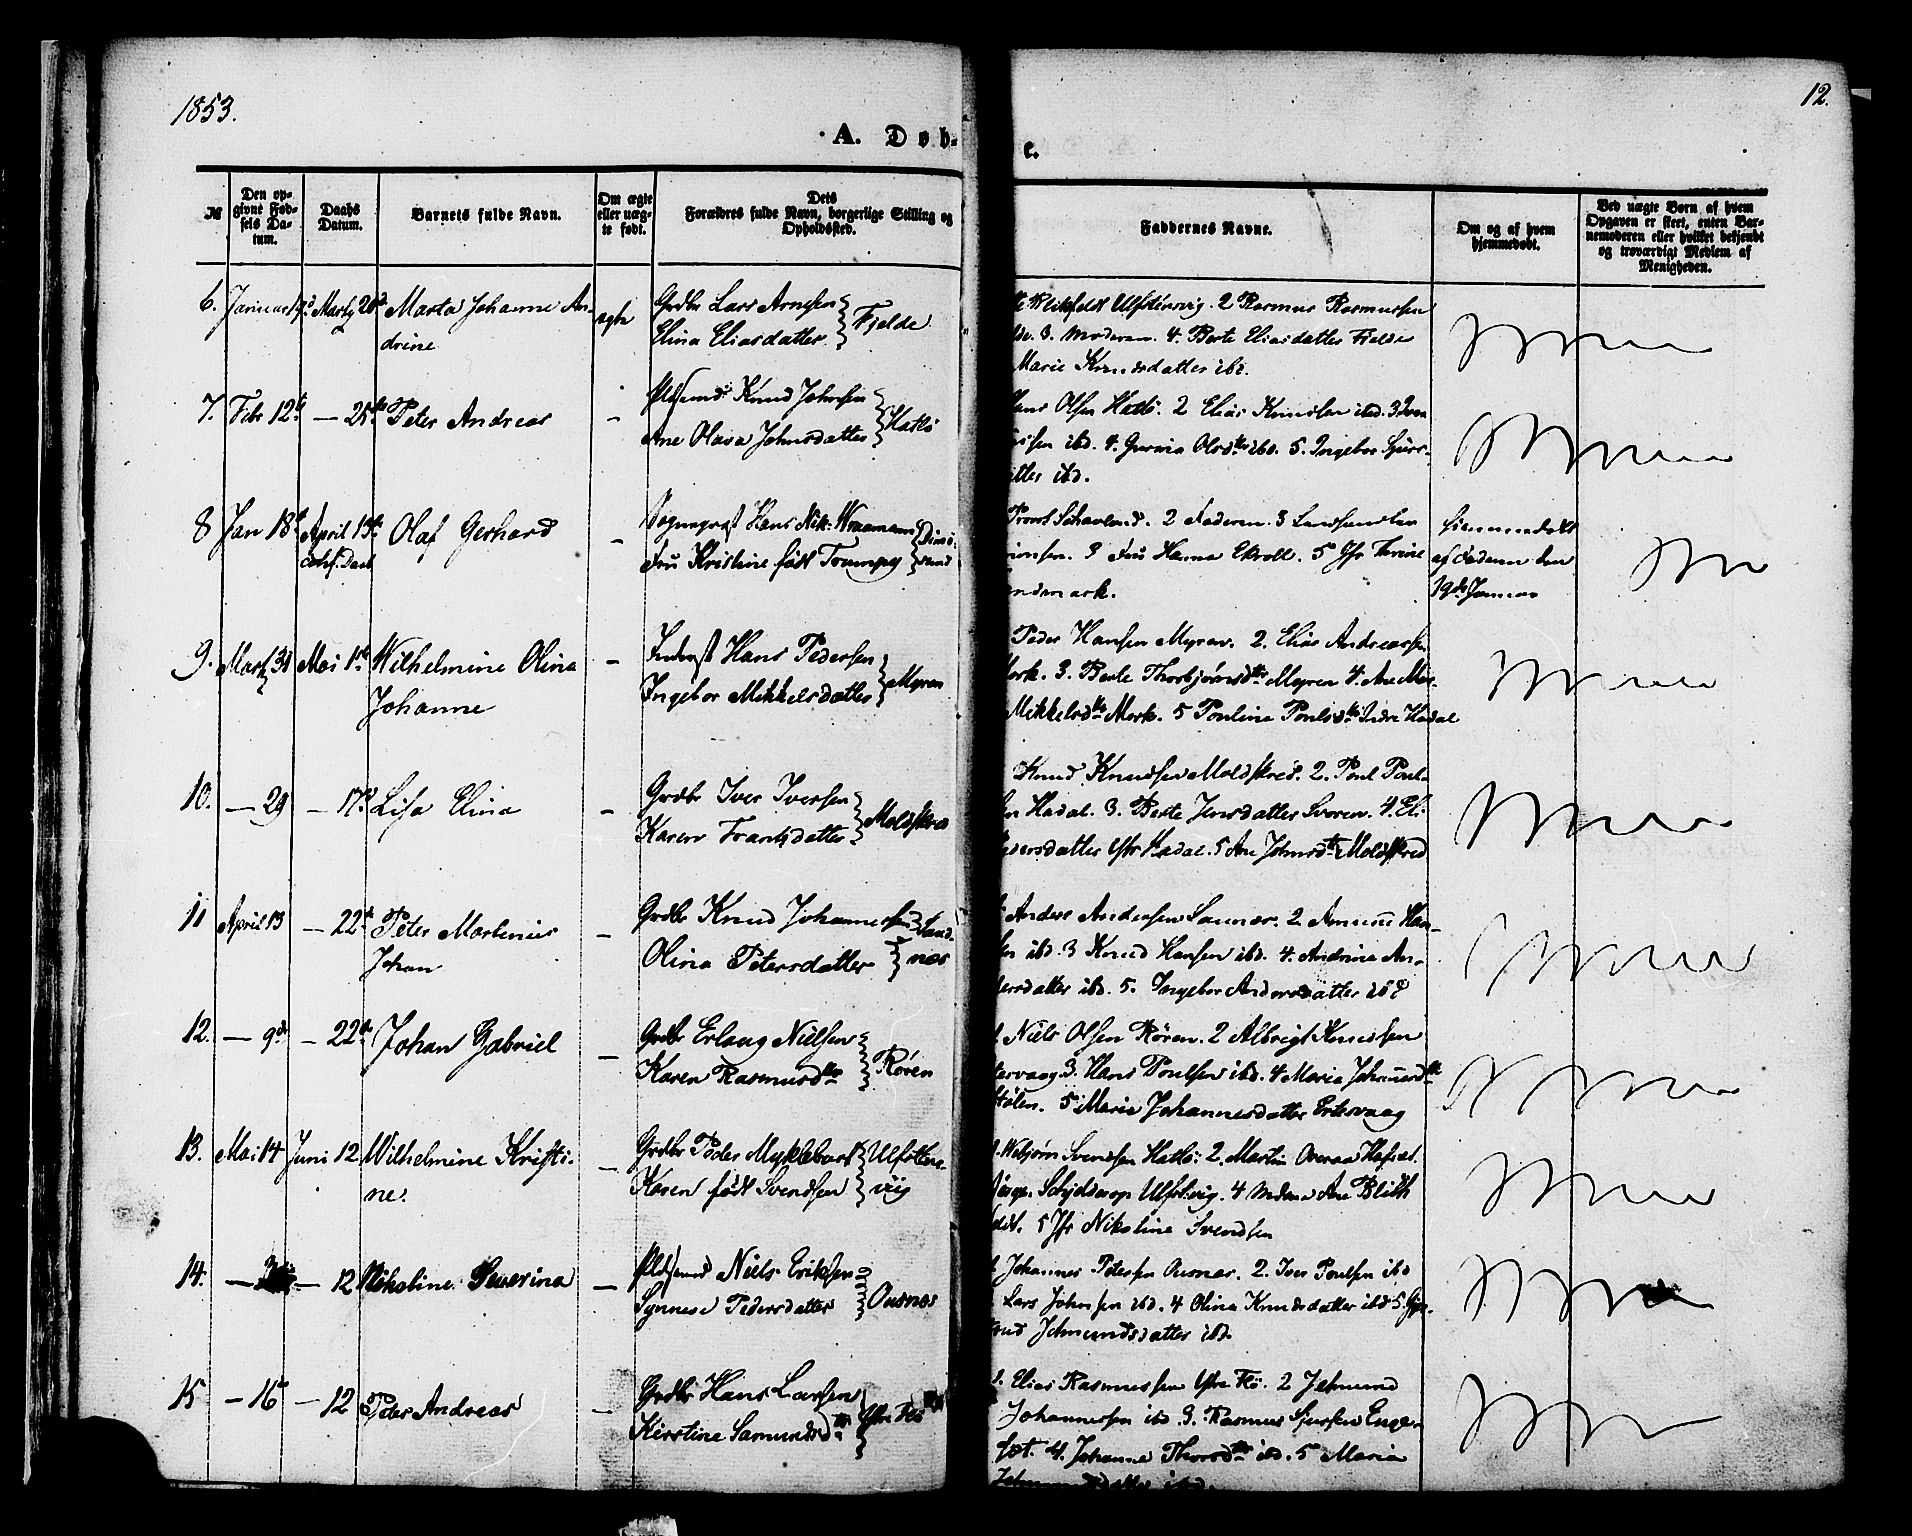 1853.
12.
A. Døb-
e.
№
Den op-
givne Fød-
sels Da-
tum.
Daabs
Datum.
Barnets fulde Navn.
Om ægte
eller uæg-
te født.
Dets
Forældres fulde Navn, borgerlige Stilling og
Opholdssted.
Faddernes Navne.
Om og af hvem
hjemmedøbt.
Ved uægte Børn af hvem
Opgaven er skeet, enten Bar-
nemoderen eller hvilket bekjendt
og troværdigt Medlem af
Menigheden.
6. Januar 19d Marts 20d Marta Johanne An-
drine
ægte
Grdbr Lars Arnesen
Elina Eliasdatter
Fjelde
Blikfeldt Ulfstensvig. 2 Rasmus Rasmussen
3. Moderen. 4. Berte Eliasdatter Fjelde
Marie Knudsdatter ibd.
7. Febr 12te — 25de Peter Andreas
—
Pldsmd Knud Johnsen
Ane Olava Johnsdatter
Hatlø
Hans Olsen Hatlø. 2 Elias Knudsen ibd. 3
ibd. 4. Gurina Olsdtr ibd. 5. Ingebor Sjurs-
atter ibd.
8 Jan 18de April 13de Olaf Gerhard
conf. Daab
—
Sognepræst Hans Nik:
Fru Kristine født Trumpy
2 Faderen. 3
3 Fru Hanna Ekroll. 5 Jfr
ndmark.
hjemmedøbt
af Faderen den
19de Januar
9. Marts 31 Mai 1ste Wilhelmine Olina
Johanne
—
Inderst Hans Pedersen
Ingebor Mikkelsdatter
Myren
Peder Hansen Myren. 2. Elias Andreassen
Mork. 3. Berte Thorbjørnsdtr Myren 4. Ane
Mikkelsdtr Mork. 5 Pouline Poulsdtr Indre Hadal
10. — 29 — 17de Lisa Elina
—
Grdbr Iver Iversen
Karen Frantsdatter
Moldskred
Knud Knudsen Moldskred. 2. Poul Poul-
sen Hadal. 3. Berte Jensdatter Svoren. 4. El-
Pedersdatter Yfr Hadal. 5 Ane Johnsdtr Moldskred
11 April 13 — 22de Peter Martinius
Johan
—
Grdbr Knud Johannessen
Olina Petersdatter
Saud-
næs
Anders Andersen Saunæs. 2 Amund Han-
sen ibd. 3 Knud Hansen ibd. 4. Andrine An-
dersdatter ibd. 5. Ingebor Andersdatter ibd
12. — 9de — 22de Johan Gabriel
—
Grdbr Erlang Nielsen
Karen Rasmusdtr
Røren
Niels Olsen Røren. 2 Albrigt Knudsen
3. Hans Poulsen ibd. 4 Maria Johannesdtr
Stølen. 5 Marie Johannesdatter Erkevaag
13. Mai 14 Juni 12 Wilhelmine Kristi-
ne.
—
Grdbr Peder Myklebust
Karen født Svendsen
Ulfstens-
vig
Webjørn Svendsen Hatlø. 2. Martin Overaa
Ulfstvig. 4 Mdme Ane Blikfeldt
5 Jfr Nikoline Svendsen
14. — — 12 Nikoline Severina
—
Pldsmd Niels Eriksen
Synneve Pedersdatter
Ousnæs
Johannes Petersen Ousnæs. 2. Iver Poulsen ibd
Lars Johnsen ibd. 4 Olina Knudsdatter ibd 5. Gjer-
trud Jetmundsdatter ibd.
15 — 16de — 12 Peter Andreas
—
Grdbr Hans Larsen
Kirstine Samundsdtr
Yfre Rø
Elias Rasmussen Yfre Rø. 2 Jetmund
Johannessen ibd 3. Rasmus Sjursen Enge-
sæt. 4. Johanne Thorsdtr ibd. 5 Maria
ibd.